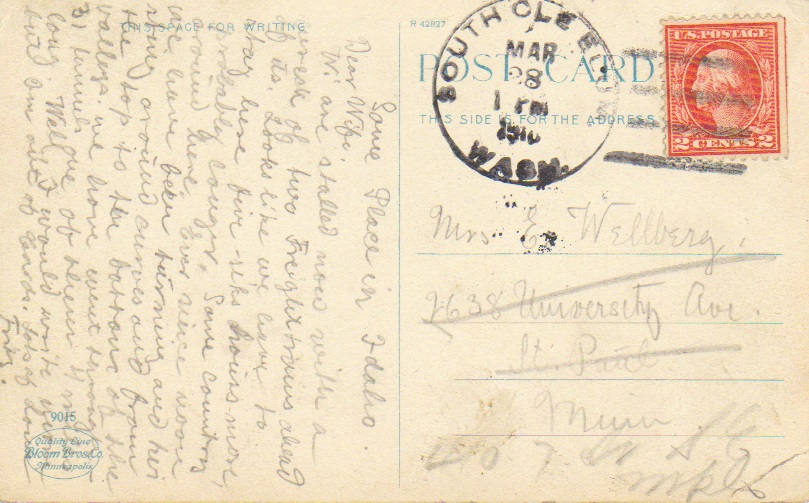 THIS SPACE FOR WRITING
R 42827
POST CARD
THIS SIDE IS FOR THE ADDRESS
SOUTH CLE ELUM
MAR
28
1 PM
1910
WASH.
U.S. POSTAGE
2 CENTS 2
Some Place in Idaho.
Dear Wife
We are stalled now with a
wreck of two Freight trains ahead
of us. Looks like we have to
stay here five six hours more,
probably longer. Some country
around here. Ever since noon
we have been turning and
around curves and from
the top to the bottom of the
valleys. we have went through
31 tunnels one of them 4 miles
long. Well I would write
but am out of cards. lots of love
Fritz.
Mrs E. Wellberg.
2638 University Ave.
St. Paul
Minn.
9015
Quality Line
Bloom Bros. Co.
Minneapolis